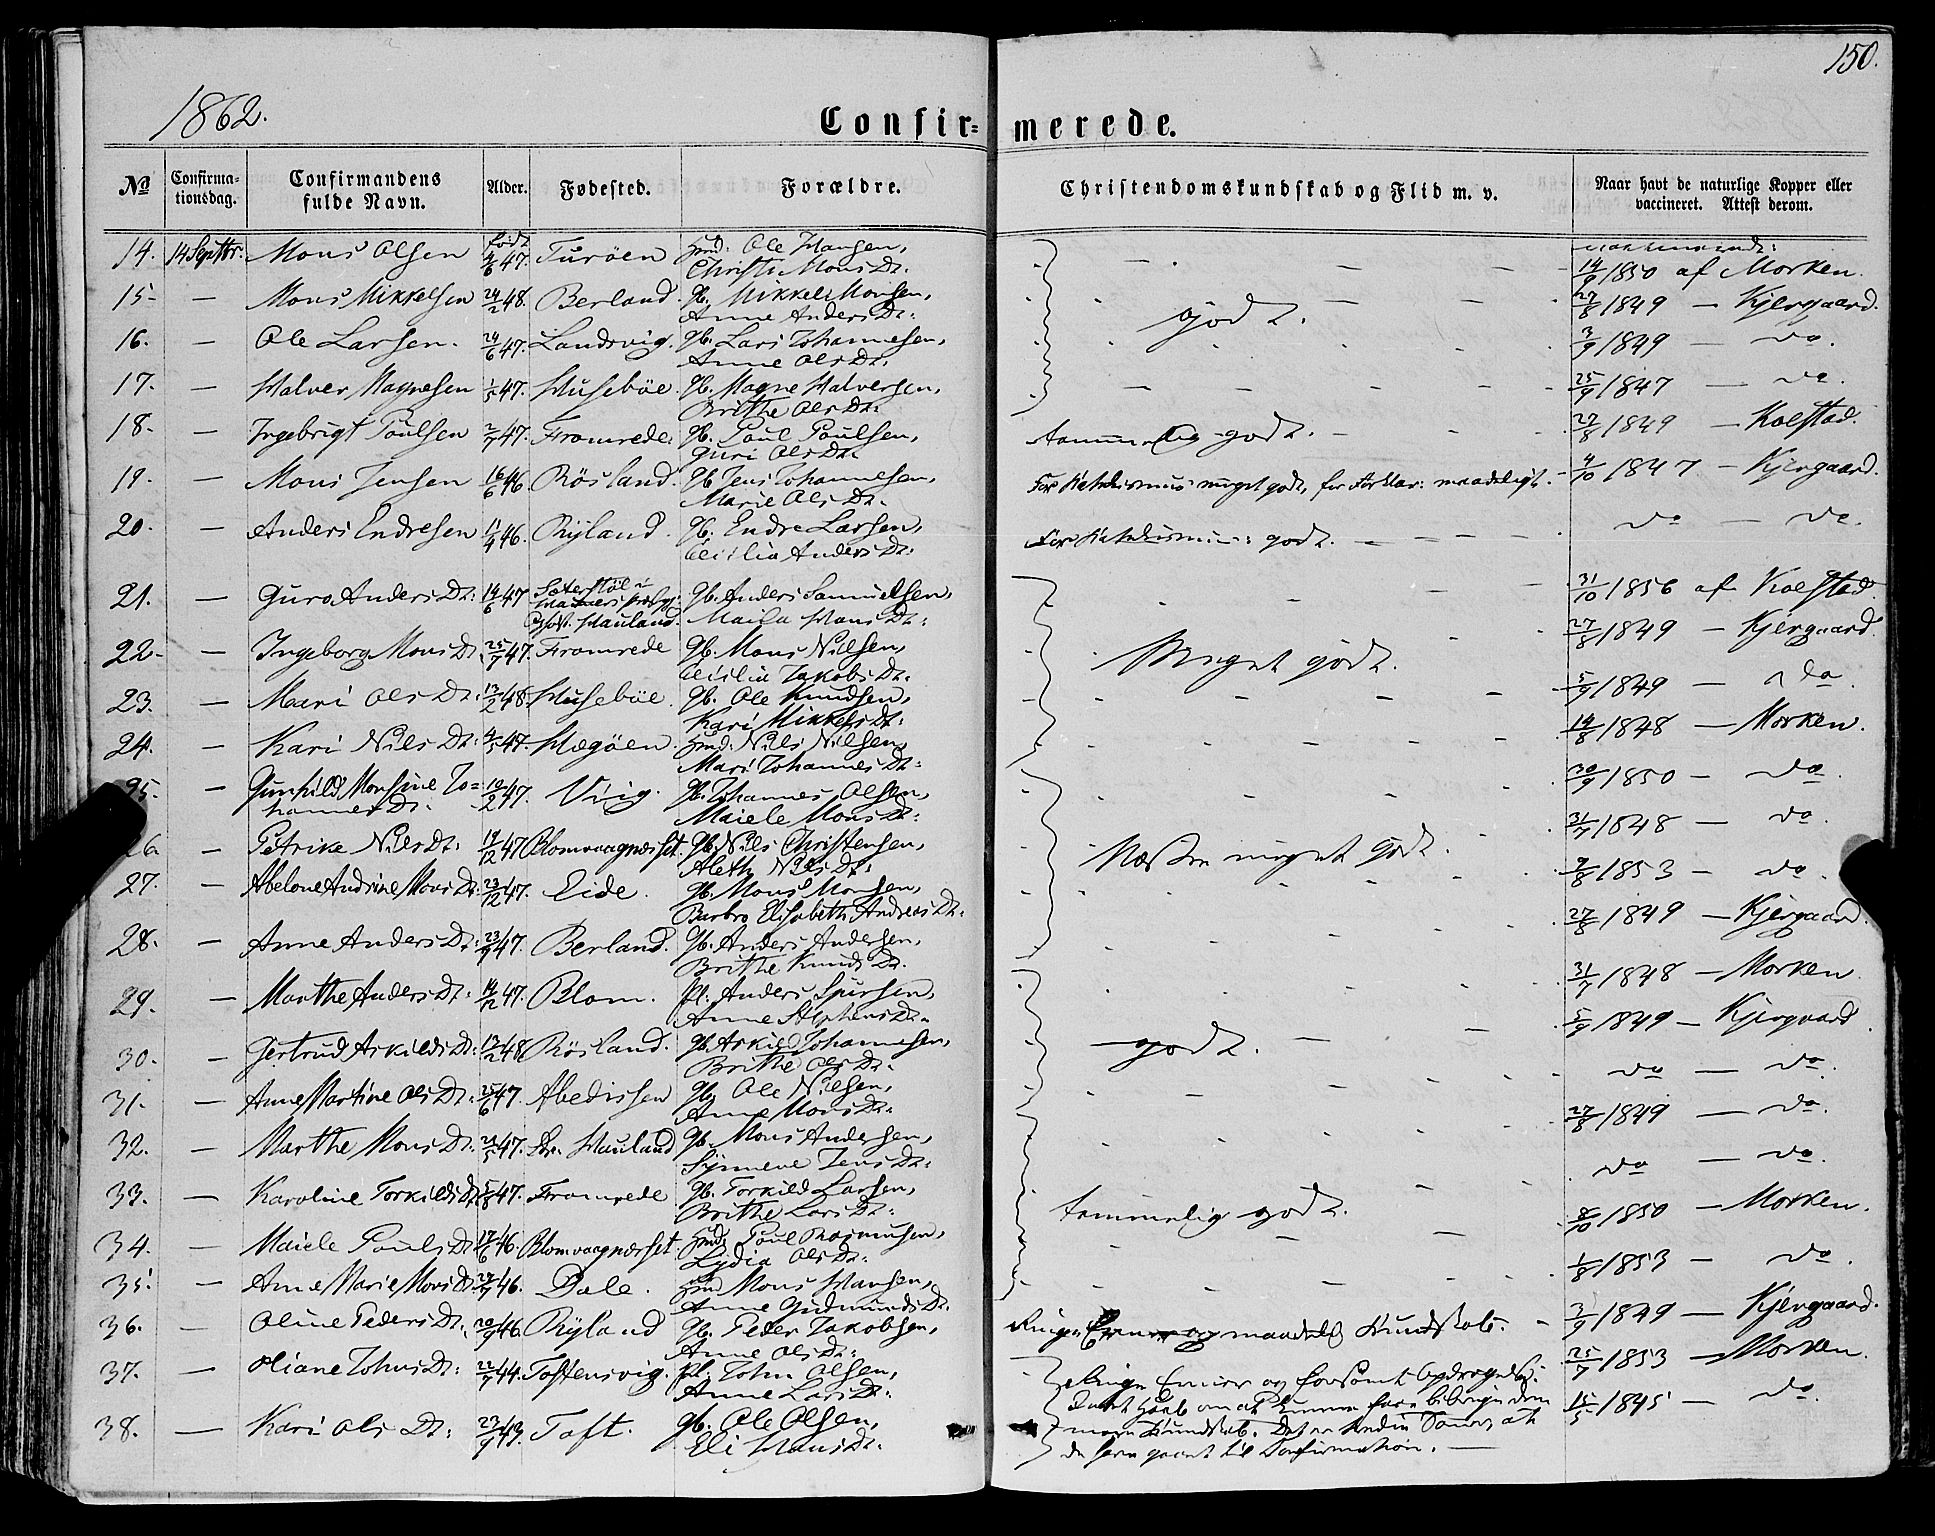 150.
1862.
Confir- merede.
No Confirma-tionsdag. Confirmandens fulde Navn. Alder. Fødested. Forældre. Christendomskundskab og Flid m. v. Naar havt de naturlige Kopper eller vaccineret. Attest derom.
14. 14 Septbr. Mons Olsen født 4/6 47. Turöen Hmd: Ole Hansen, Christi Mons Dr. 14/9 1850 af Morken.
15 — Mons Mikkelsen 24/2 48. Berland. Gb. Mikkel Monsen, Anne Anders Dr: godt. 27/8 1849 — Kjergaard.
16. — Ole Larsen. 24/6 47. Landsvig. Gb. Lars Johannesen, Anne Ols Dr. 3/9 1849 — do.
17. — Halver Magnesen 1/5 47. Husebøe. Gb. Magne Halversen, Brithe Ols Dr: 25/9 1847 — do.
18. — Ingebrigt Poulsen 2/7 47. Fromrede: Gb. Poul Poulsen, Guri Ols Dr. temmelig godt. 27/8 1849 — Kolstad.
19. — Mons Jensen 16/6 46. Rösland. Gb Jens Johannesen, Marie Ols Dr. For Katekismus meget godt, for Forklar: maadeligt. 4/10 1847 — Kjergaard.
20. — Anders Endresen 1/4 46. Ryland. Gb. Endre Larsen, Cecilia Anders Dr: For Katekismus: godt. do — do.
21. — Guro Anders Dr: 14/6 47 Hauland. Gb. Anders Samuelsen, Maila Hans Dr: 31/10 1856 af Kolstad.
22. — Ingeborg Mons Dr. 25/7 47. Fromrede Gb. Mons Nilsen, Cecilia Jakobs Dr. Meget godt. 27/8 1849 — Kjergaard.
23. — Mari Ols Dr: 13/2 48. Husebøe. Gb. Ole Knudsen, Kari Mikkels Dr: 5/9 1849 — do.
24. — Kari Nils Dr: 4/5 47. Hægöen. Hmd: Nils Nilsen, Mari Johannes Dr: 14/8 1848 — Morken.
25. — Gunhild Monsine Jo-hannes Dr. 10/2 47. Viig. Gb. Johannes Olsen, Maiele Mons Dr: 30/9 1850 — do.
26 — Petrike Nils Dr: 14/12 47 Blomvaagnæsset. Gb. Nils Christensen, Aleth Nils Dr: Næsten meget godt. 31/7 1848 — do.
27. — Abelone Andrine Mons Dr: 23/12 47. Eide. Gb. Mons Monsen, Barbro Elisabeth Andreas Dr. 9/8 1853 — do.
28. — Anne Anders Dr. 23/9 47. Berland. Gb. Anders Andersen, Brithe Knuds Dr. 27/8 1849 — Kjergaard.
29. — Marthe Anders Dr: 14/12 47. Blom. Pl: Anders Spursen, Anne Stephens Dr. 31/7 1848 — Morken.
30. — Gertrud Askilds Dr: 13/2 48. Rösland. Gb Askild Johannesen, Brithe Ols Dr. godt. 5/9 1849 — Kjergaard
31. — Anne Martine Ols Dr: 25/6 47. Abedissen Gb. Ole Nilsen, Anne Mons Dr: do — do.
32. — Marthe Mons Dr: 24/5 47. Str. Hauland Gb. Mons Andersen, Synneve Jens Dr: 27/8 1849 — do.
33. — Karoline Torkilds Dr. 5/8 47. Fromrede Gb. Torkild Larsen, Brithe Lars Dr: temmelig godt. do — do.
34. — Maiele Pouls Dr. 17/6 46. Blomvaagnæsset Hmd: Poul Rasmusen, Lydia Ols Dr: 8/10 1850 — Morken.
35. — Anne Marie Mons Dr. 27/7 46. Dale. Hmd Mons Hansen, Anne Gudmunds Dr. 1/8 1853 — do
36. — Oline Peders Dr: 20/9 46. Ryland Gb. Peder Jakobsen, Anne Ols Dr: Ringe Evner og maadelig Kundskab. 3/9 1849 — Kjergaard.
37. — Oliane Johns Dr: 22/7 44. Toftensvig. Pl: John Olsen, Anne Lars Dr. Ringe Evner og forsømt Opdragelse. 25/7 1853 — Morken.
38. — Kari Ols Dr: 23/9 43. Toft. Gb. Ole Olsen, Eli Hans Dr. mere Kundskab. til Confirmation. 15/5 1845 — do.